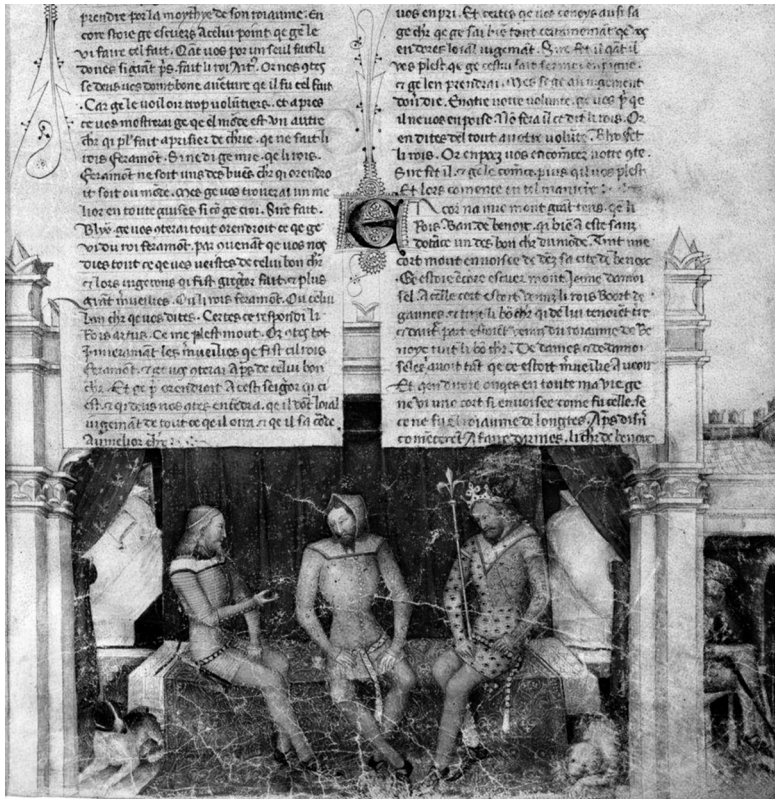 prendre por la moytyé de son roiaume. En
core seroie ge escuers. A celui point qe ge le
vi faire cel fait. Qãt vos por un seul fait li
donés si grant pris. fait li roi Art'. Or nos otes
se deus vos doint bone auẽture qe il fu cel fait
Car ge le voil oir trop volũtiers. et apres
ce vos mostrai ge qe el mõde est vn autre
chr qi pl' fait a prisier de chrie. qe ne fait li
rois feramõt. Si ne di ge mie. qe li rois.
feramõt ne soit uns des buẽs chr qi orendro
it soit ou mõde. mes ge vos trouerai un me
lior en toute guises si cõ ge croi. Sire fait.
Blyo. ge vos oterai tout orendroit ce qe ge
vi du roi feramõt. par ouenãt qe vos nos
dies tout ce qe vos veistes de celui bon chr
lors iugerons qi fist greignor fait. plus
grãt mueilies. Ou li rois feramõt. Ou celui
bon chr qe vos dites. Certes ce respondi li
Rois artus. Ce me plest mout. Or otes tot
les mueilies qe fist cil rois
feramõt. ge vos oterai aps de celui bon
chr. Et ge orendroit a cest seignor qi ci
est. qi deuãt nos otes entẽdra. qe il dõt loial
iugemẽt de tout ce qe il oira. qe il sa corde
Au melior chr
vos en pri. Et certes ge vos conoys a si sa
ge chr qe ge sai biẽ tout certeinemẽt qe vos
en deres loial iugemẽt. Sire fet il qãt il
vos plest qe ge cestui fait
ge len prendrai. mes se ge an iugement
doit die. Enqtre vostre volunte. ge vos p' qe
il ne vos enpoise. Nõ fera il ce dit li rois. Or
en dites del tout a vostre volũte. Blyo fet
li rois. Or en pez vos encomẽcez vostre ote.
Sire fet il. ge le comẽce. puis qil vos plest
Et lors comence en tel maniere
E cor na mie mont grãt tens. qe li
Rois Ban de benoic. qi biẽ a esté sanz
dotãce un des bon chr du mõde. Tint une
cort mout enuoisee de dez sa cite de benoic
Ge estoie ẽcore escuer mont jeune damoi
sel. A celle cort estoit venuz li rois Boort de
gaunes. tuit li bõ chr qi de lui tenoiẽt tre
dautre part estoiẽt venu du roiaume de Be
noyc tuit li bõ chr. De dames de damoi
seles auoit tãt qe ce estoit mueilie a veoir
Et qen diroie onqes en toute ma vie ge
ne vi une cort si enuoisee come fu celle. se
ce ne fu el roiaume de longres. Aps disn
comẽcerẽt a faire darmes. li chr de benoic